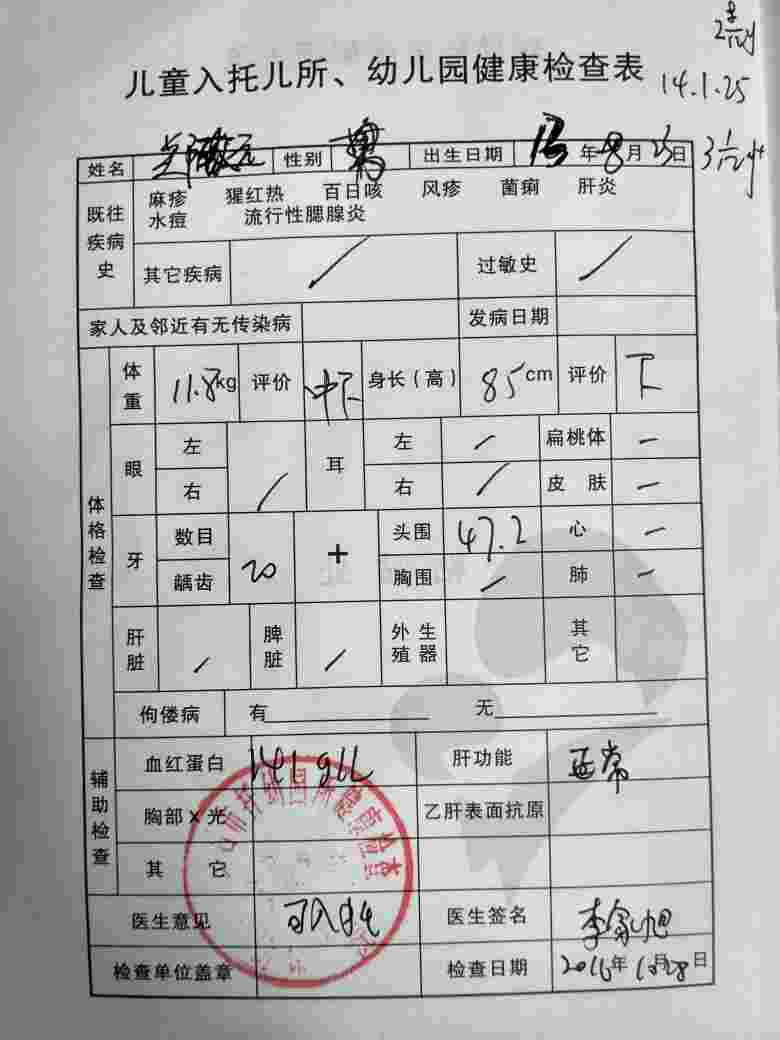 14.1.25
儿童入托儿所、幼儿园健康检查表
姓名 性别 男 出生日期 13 年 8 月 23 日
既往疾病史 麻疹 猩红热 百日咳 风疹 菌痢 肝炎
水痘 流行性腮腺炎
其它疾病 / 过敏史 /
家人及邻近有无传染病 发病日期
体格检查
体重 11.8kg 评价 中下 身长(高) 85cm 评价 下
眼 左 耳 左 — 扁桃体 —
右 / 右 / 皮肤 —
牙 数目 20 + 头围 47.2 心 —
龋齿 胸围 — 肺 —
肝脏 / 脾脏 / 外生殖器 其它
佝偻病 有 无
辅助检查
血红蛋白 141 g/L 肝功能 正常
胸部X光 乙肝表面抗原
其它
医生意见 可入托 医生签名
检查单位盖章 检查日期 2016年10月28日